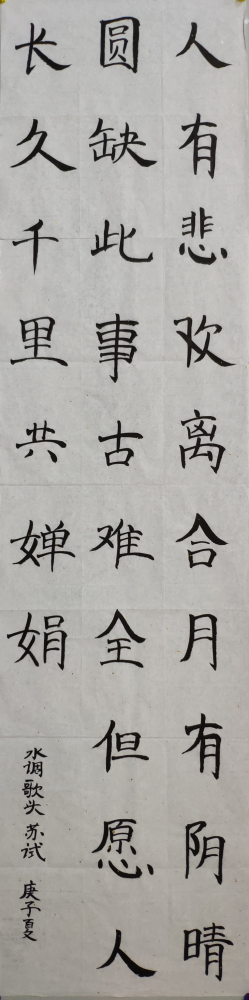 人有悲欢离合月有阴晴
圆缺此事古难全但愿人
长久千里共婵娟
水调歌头 苏试 庚子夏